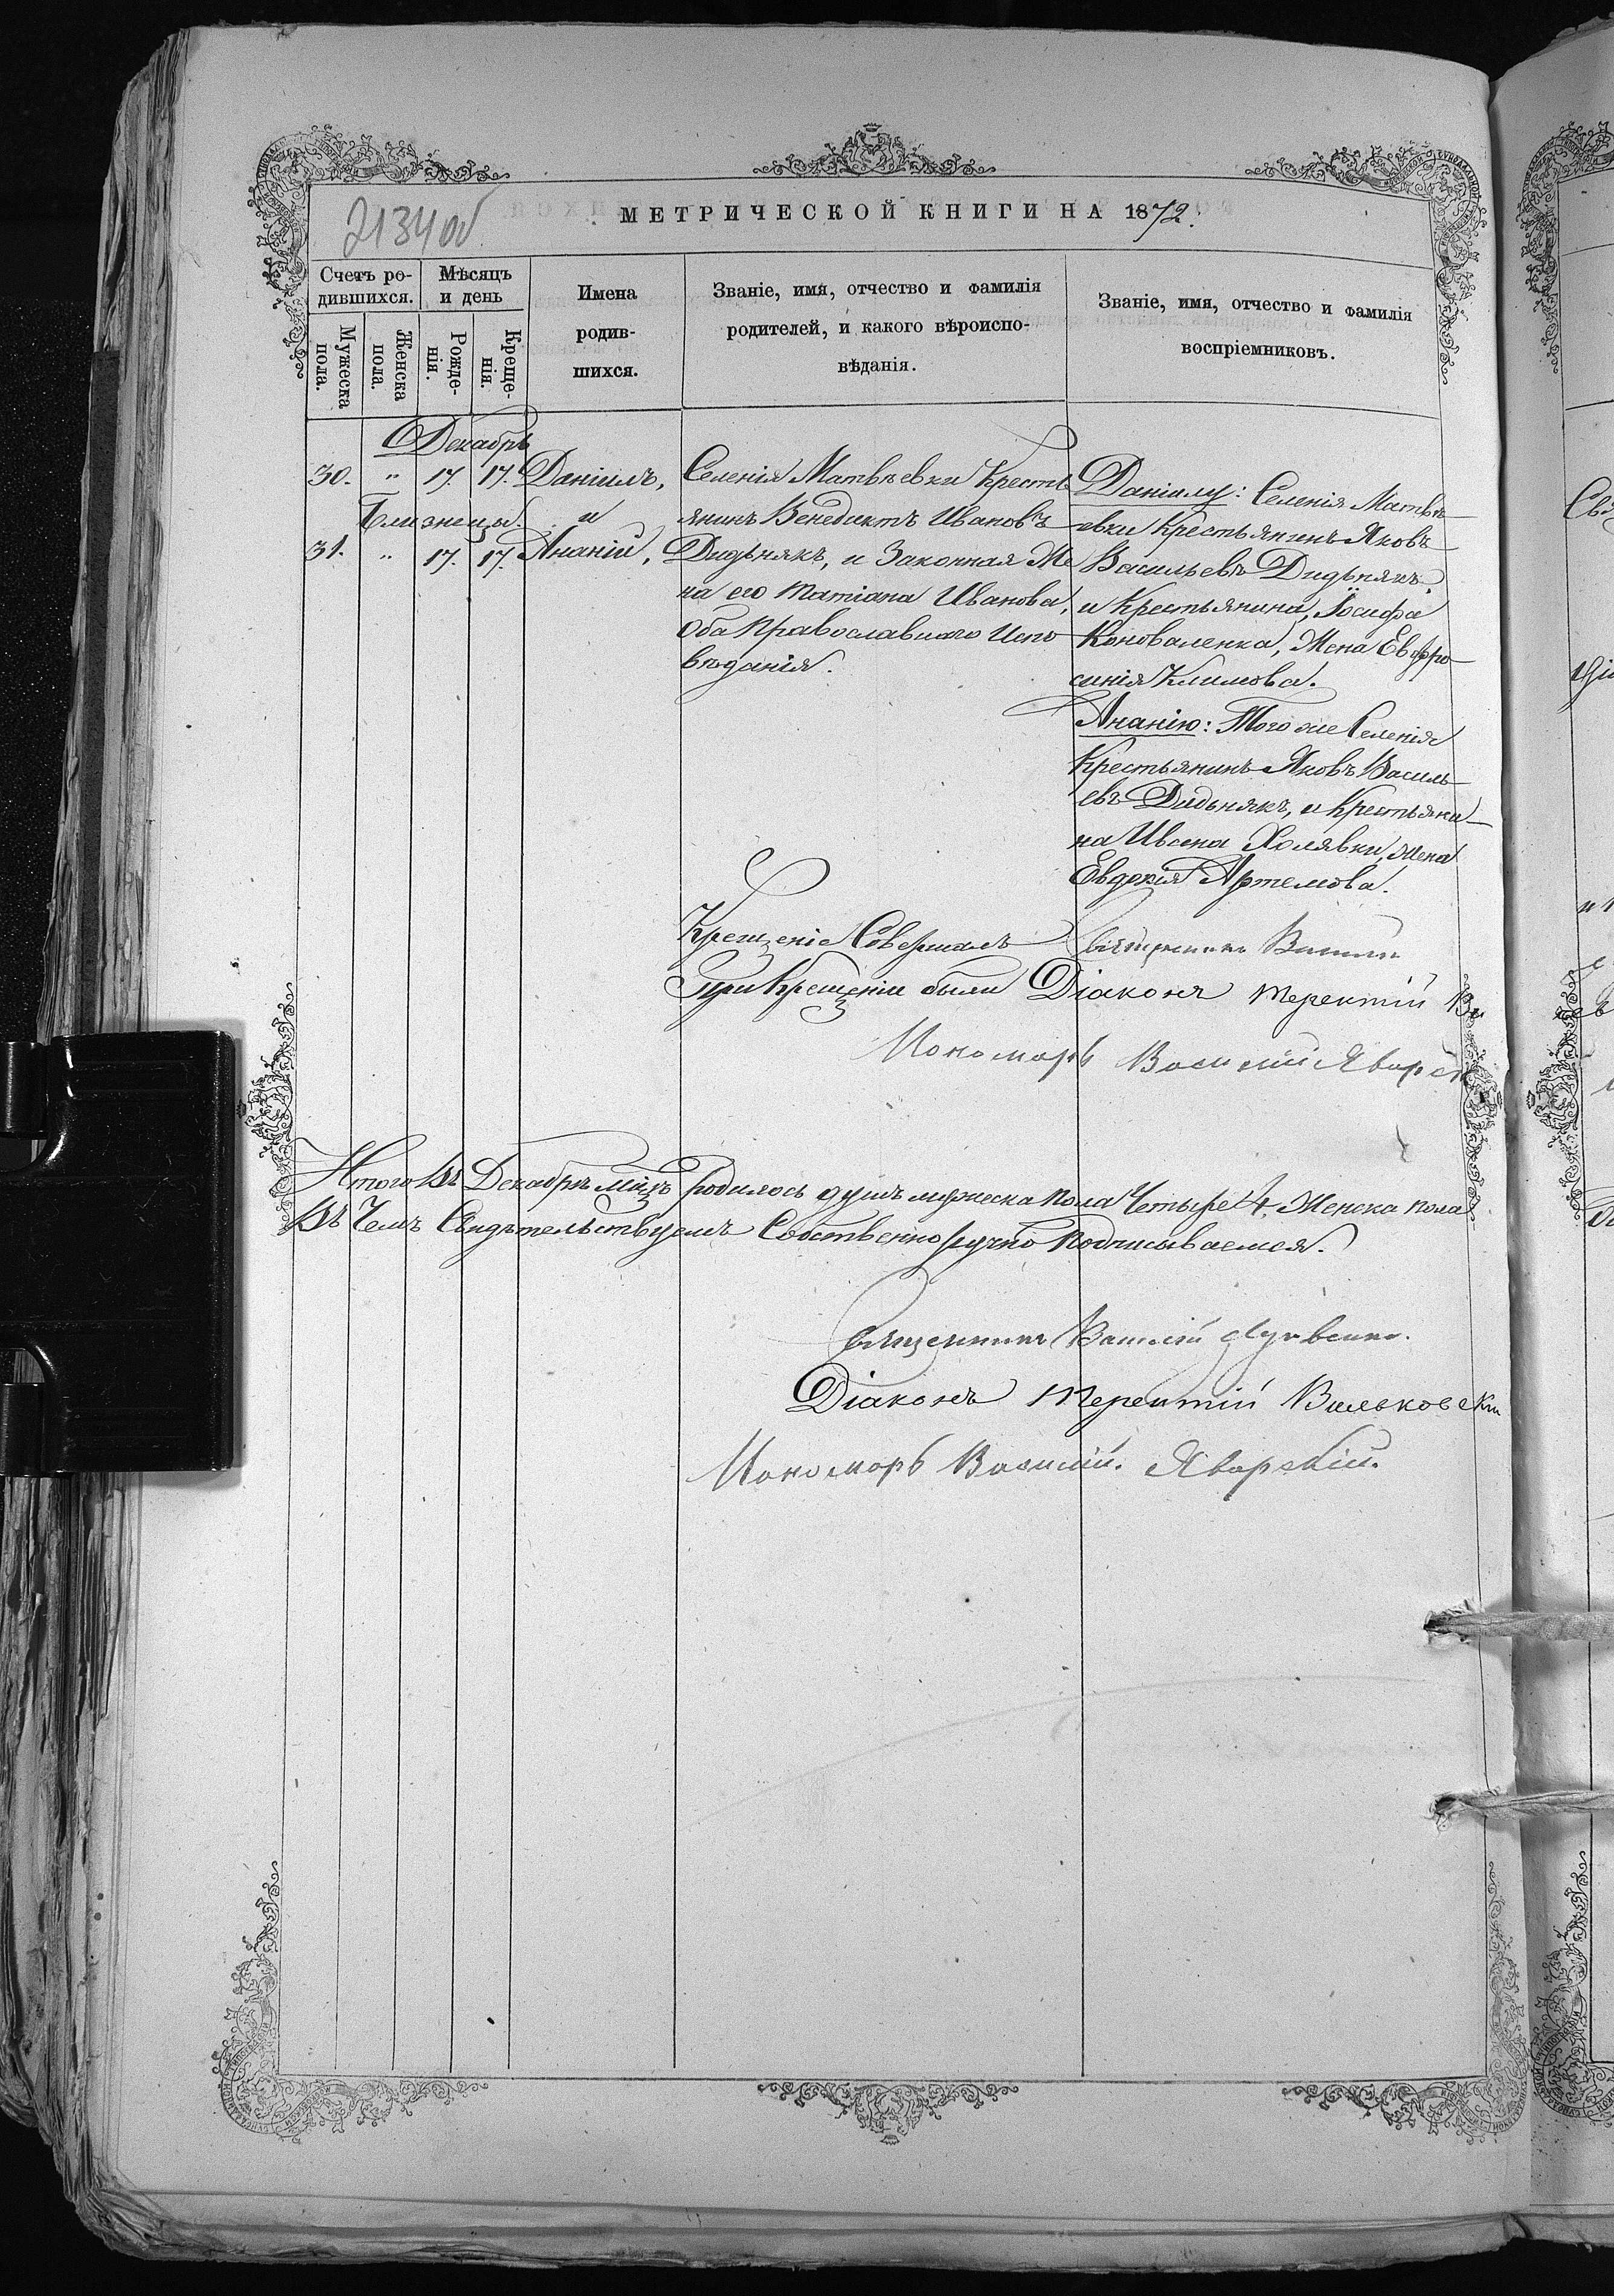 2134 об
МЕТРИЧЕСКОЙ КНИГИ НА 1872.
Счетъ ро-
дившихся.
Мѣсяцъ
и день
Мужеска
пола.
Женска
пола.
Рожде-
нія.
Креще-
нія.
Имена
родив-
шихся.
Званіе, имя, отчество и фамилія
родителей, и какого вѣроиспо-
вѣданія.
Званіе, имя, отчество и фамилія
воспріемниковъ.
Декабрь
30. " 17. 17. Даніилъ,
Близнецы. и
31. " 17. 17. Ананій,
Селенія Матвѣевки Кресть
янинъ Венедиктъ Ивановъ
Дидьнякъ, и Законная Же
на его Татіана Иванова,
Оба Православнаго Испо
вѣданія.
Даніилу: Селенія Матвѣ
евки Крестьянинъ Яковъ
Васильевъ Дидьнякъ,
и Крестьянина, Іосифа
Коноваленка, Жена Евфро
синія Климова.
Ананію: Того же Селенія
Крестьянинъ Яковъ Василь
евъ Дидьнякъ, и Крестьяни
на Ивана Холявки, жена
Евдокія Артемова.
Крещеніе Совершалъ Священникъ Василій
При Крещеніи были Діаконъ Терентій
Пономарь Василій Яворск
Итого въ Декабрѣ мцѣ родилось душъ мужеска пола Четыре 4, Женска пола
Въ Чемъ Свидѣтельствуемъ Собственноручно Подписываемся.
Священникъ Василій
Діаконъ Терентій Вильковски
Пономарь Василій. Яворскій.